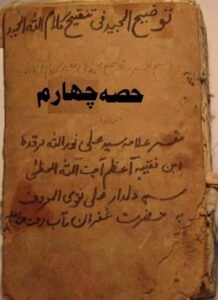 توضیح المجید فی تنقیح کلام اللہ الحمید
حصہ چہارم
مفسر علامہ سید علی نور اللہ مرقدہ
ابن فقیہ اعظم آیت اللہ العظمیٰ
سید دلدار علی نقوی المعروف
بہ حضرت غفران مآب